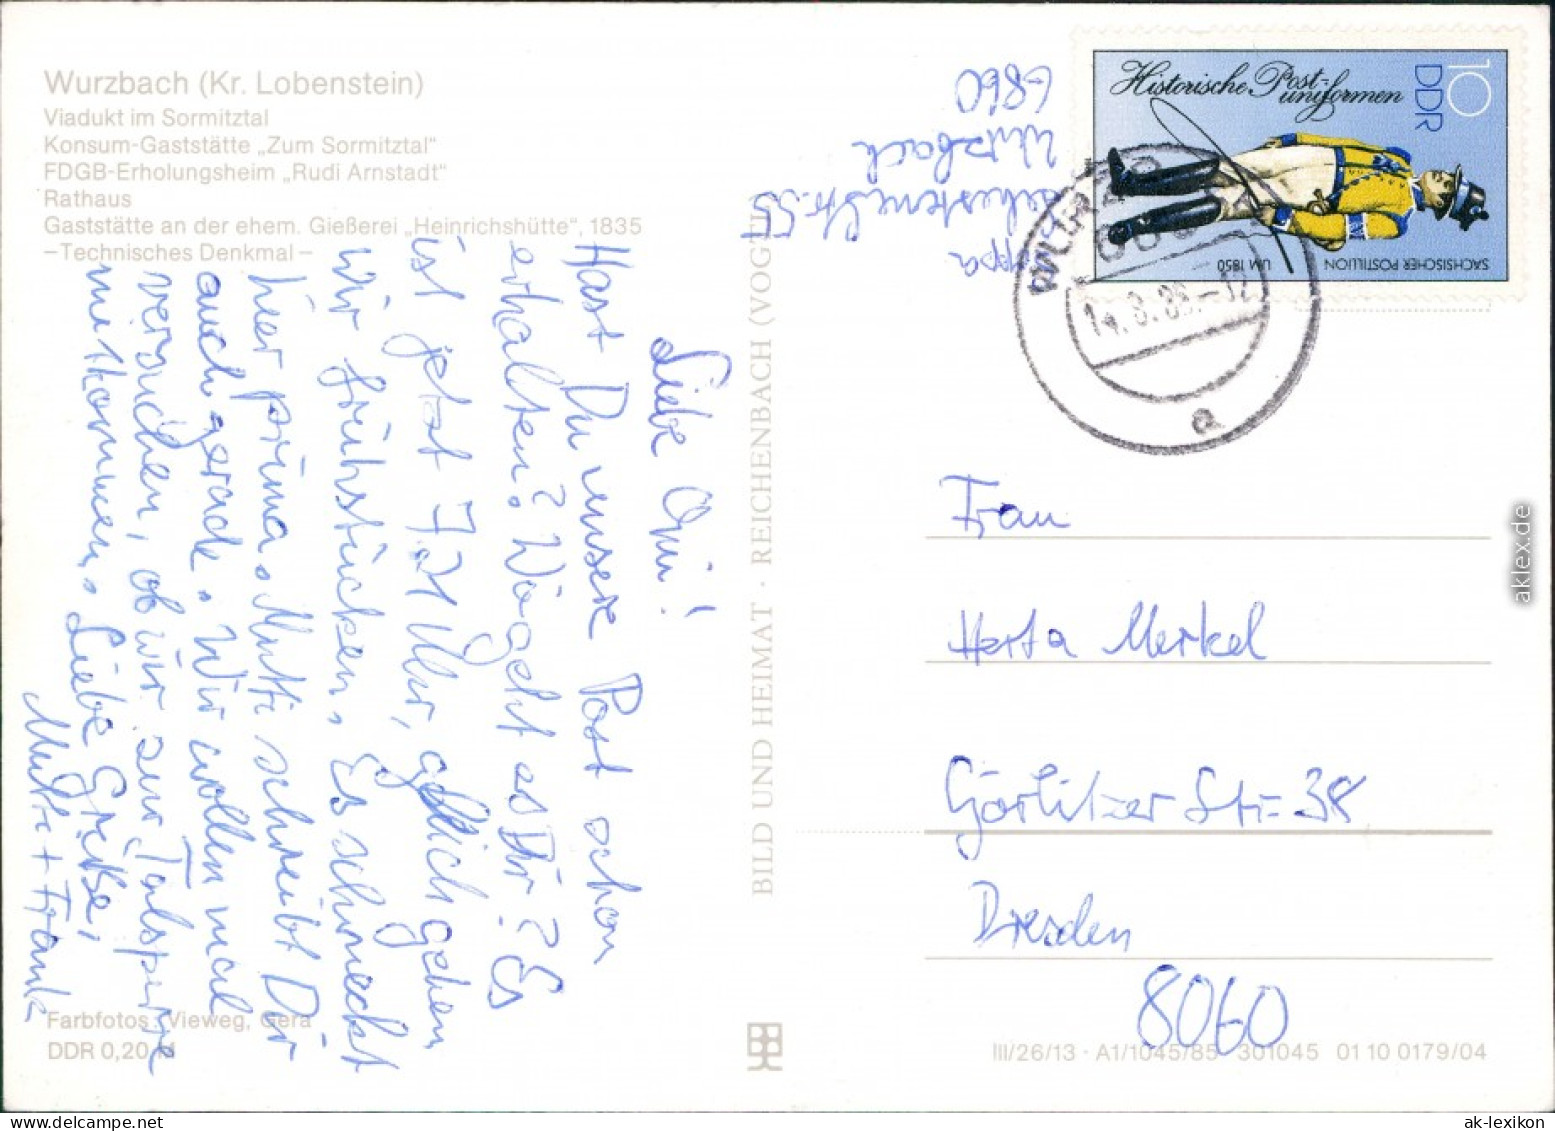 Wurzbach (Kr. Lobenstein)
Viadukt im Sormitztal
Konsum-Gaststätte „Zum Sormitztal“
FDGB-Erholungsheim „Rudi Arnstadt“
Rathaus
Gaststätte an der ehem. Gießerei „Heinrichshütte“, 1835
–Technisches Denkmal–
Liebe Omi!
Hast Du unsere Post schon
erhalten? Wie geht es Dir? Es
ist jetzt 7.21 Uhr, gleich gehen
wir frühstücken. Es schmeckt
hier prima. Mutti schreibt Dir
auch gerade. Wir wollen mal
versuchen, ob wir zur Talsperre
mitkommen. Liebe Grüße,
Mutti + Frank
Farbfotos: Vieweg, Gera
DDR 0,20 M
BILD UND HEIMAT · REICHENBACH (VOGTL)
Str. 55
Wurzbach
6860
Historische Post=
uniformen
10
DDR
SÄCHSISCHER POSTILLION UM 1850
a
Frau
Herta Merkel
Görlitzer Str. 38
Dresden
8060
III/26/13 · A1/1045/85 301045 01 10 0179/04
aklex.de
ak-lexikon